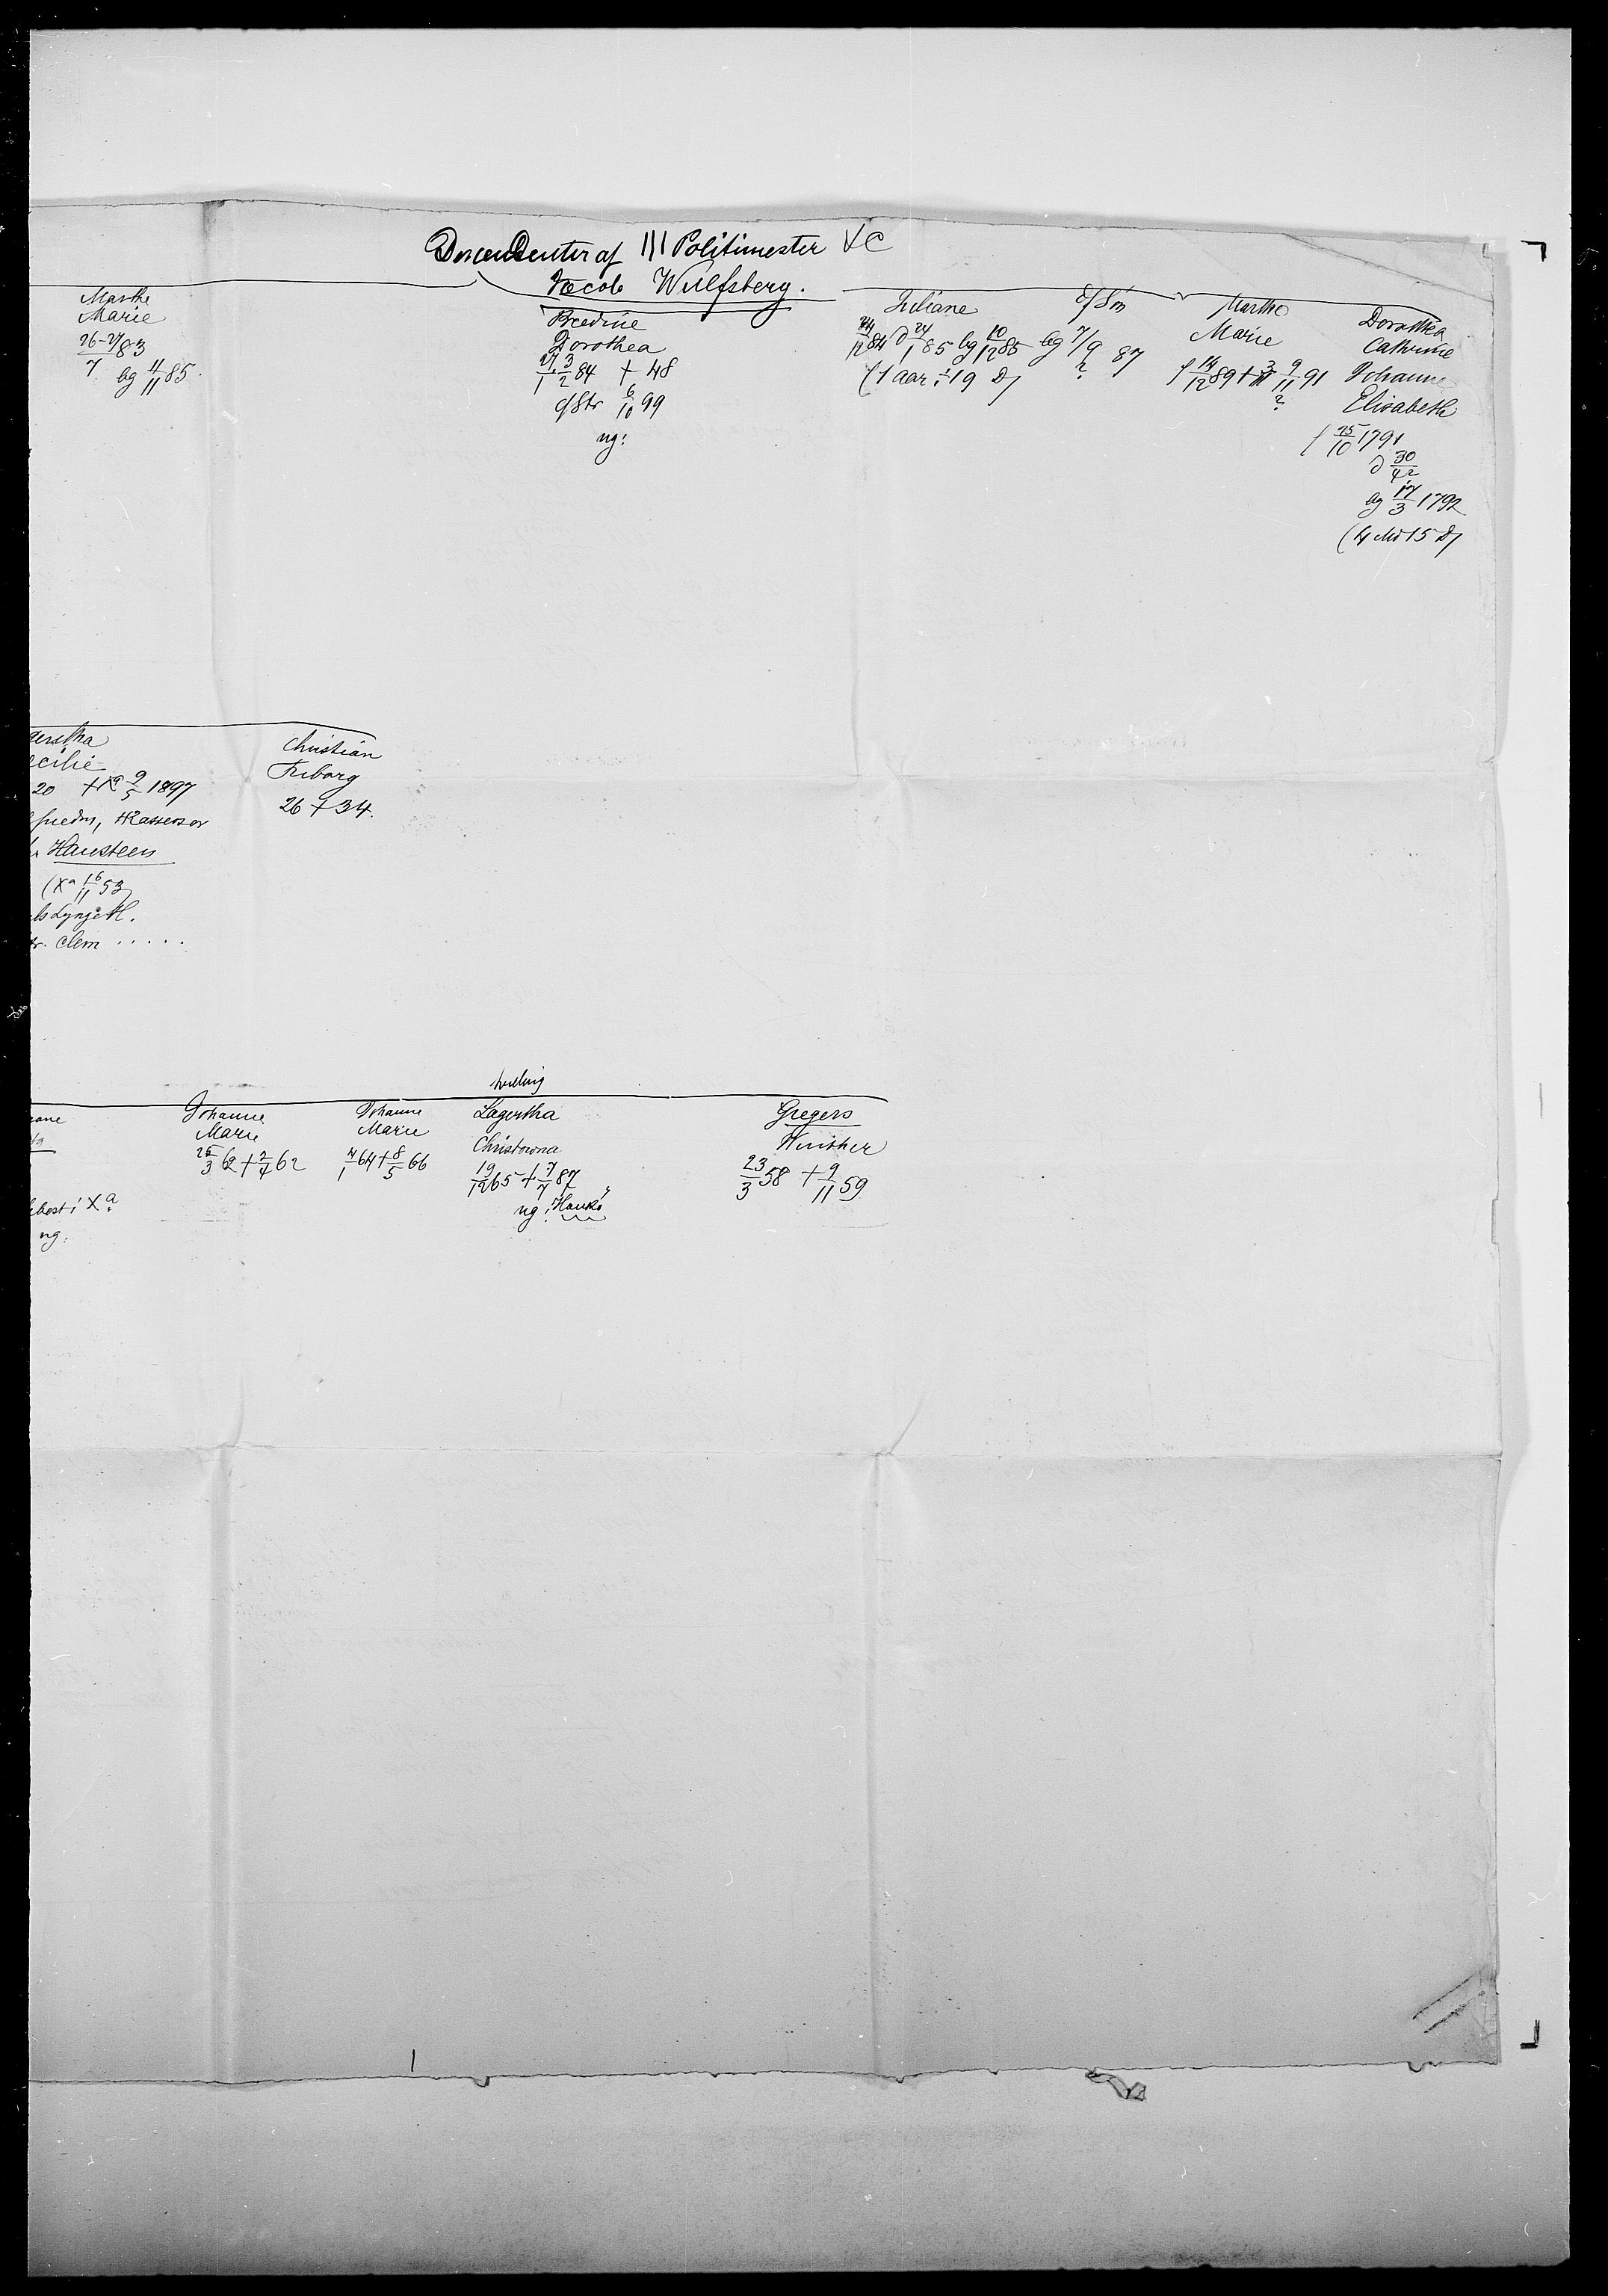 Descendenter af III Politimester &c
Jacob Wulfsberg.
Marthe
Marie
26-27/7 83
bg 11/11 85.
Bredine
Dorothea
27/1 3/2 84 + 48
c/Str 6/10 99
ug:
Juliane
24/12 84 d 24/1 85 bg 10/12 85
(1 aar ÷ 19 D)
d/Sm
bg 7/9 87
?
Marthe
Marie
f 14/12 89 + 9/11 91
?
Dorothea
Cathrine
Johanne
Elisabeth
f 25/10 1791
d 30/12
bg 17/3 1792
(4 Md 15 D)
geretha
ecilie
20 + Xa 9/5 1897
Hansteen
(Xa 16/11 53)
Lynge H.
Clem .....
Christian
Friborg
26 + 34.
iane
i Xa
ug.
Johanne
Marie
25/3 62 + 2/4 62
Johanne
Marie
4/1 64 + 8/5 66
tvilling
Lagertha
Christiana
19/12 65 + 7/7 87
ug: Hankø
Gregers
Winther
23/3 58 + 9/11 59